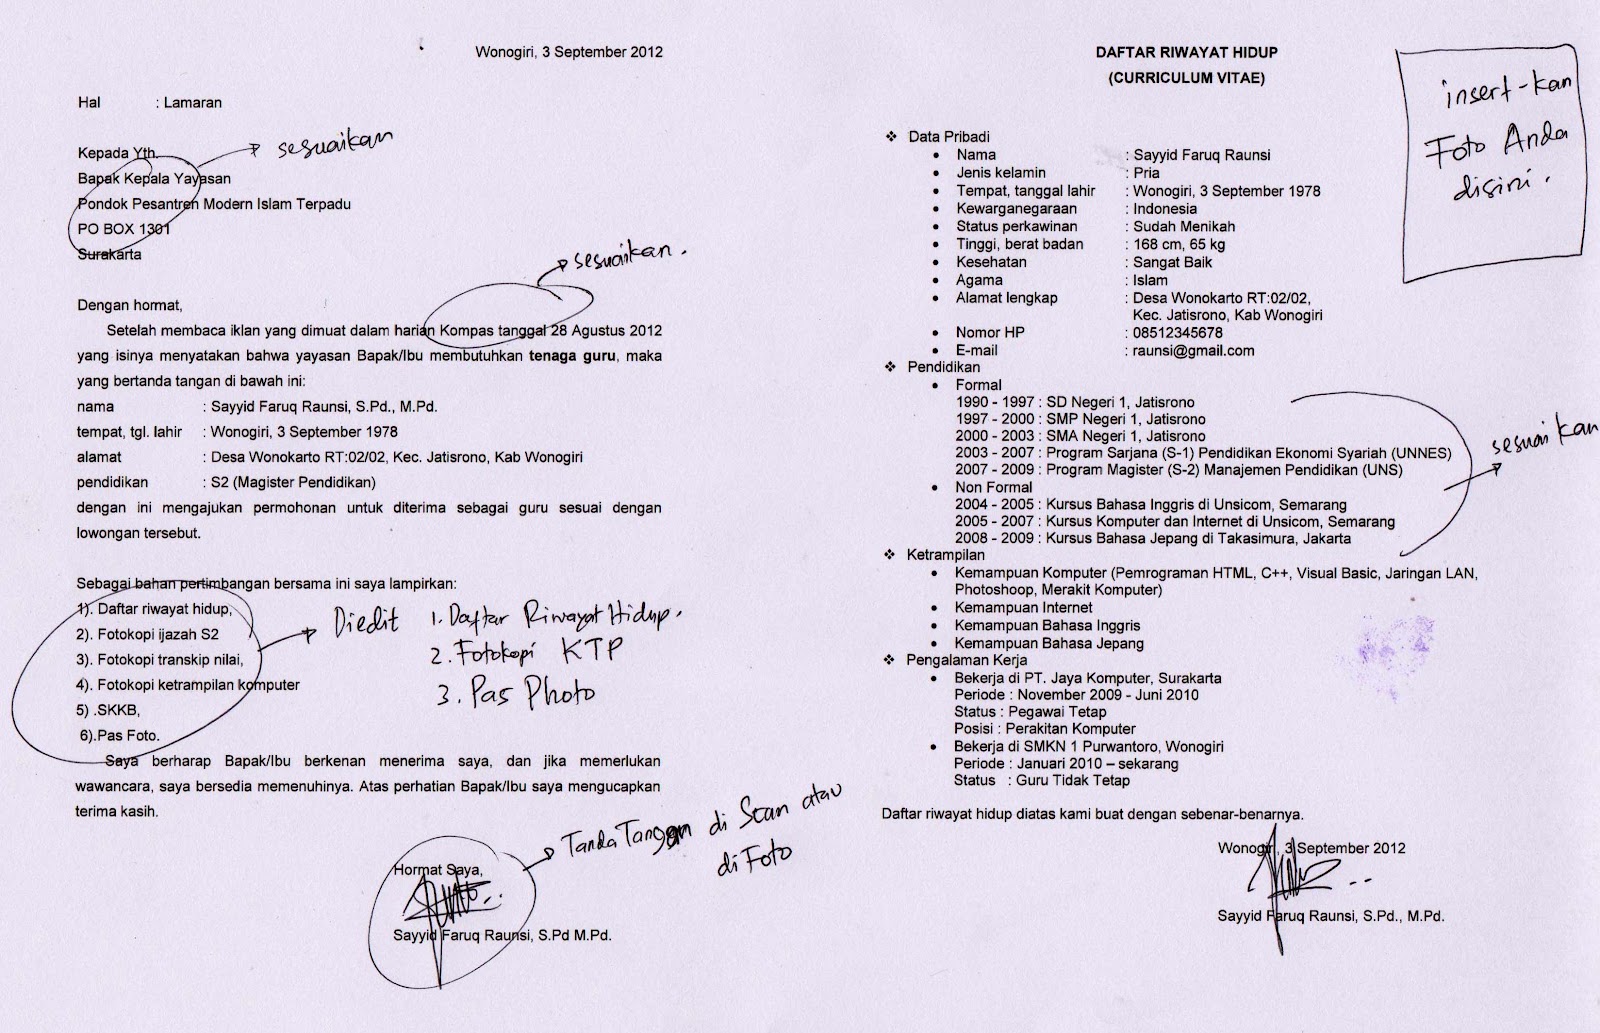 Wonogiri, 3 September 2012
Hal : Lamaran
Kepada Yth.
Bapak Kepala Yayasan
Pondok Pesantren Modern Islam Terpadu
PO BOX 1301
Surakarta
sesuaikan
Dengan hormat,
Setelah membaca iklan yang dimuat dalam harian Kompas tanggal 28 Agustus 2012
yang isinya menyatakan bahwa yayasan Bapak/Ibu membutuhkan tenaga guru, maka
yang bertanda tangan di bawah ini:
sesuaikan.
nama : Sayyid Faruq Raunsi, S.Pd., M.Pd.
tempat, tgl. lahir : Wonogiri, 3 September 1978
alamat : Desa Wonokarto RT:02/02, Kec. Jatisrono, Kab Wonogiri
pendidikan : S2 (Magister Pendidikan)
dengan ini mengajukan permohonan untuk diterima sebagai guru sesuai dengan
lowongan tersebut.
Sebagai bahan pertimbangan bersama ini saya lampirkan:
1). Daftar riwayat hidup,
2). Fotokopi ijazah S2
3). Fotokopi transkip nilai,
4). Fotokopi ketrampilan komputer
5) .SKKB,
6).Pas Foto.
Diedit 1. Daftar Riwayat Hidup.
2. Fotokopi KTP
3. Pas Photo
Saya berharap Bapak/Ibu berkenan menerima saya, dan jika memerlukan
wawancara, saya bersedia memenuhinya. Atas perhatian Bapak/Ibu saya mengucapkan
terima kasih.
Hormat Saya,
Sayyid Faruq Raunsi, S.Pd M.Pd.
Tanda Tangan di Scan atau
di Foto
DAFTAR RIWAYAT HIDUP
(CURRICULUM VITAE)
insert-kan
Foto Anda
disini.
❖ Data Pribadi
• Nama : Sayyid Faruq Raunsi
• Jenis kelamin : Pria
• Tempat, tanggal lahir : Wonogiri, 3 September 1978
• Kewarganegaraan : Indonesia
• Status perkawinan : Sudah Menikah
• Tinggi, berat badan : 168 cm, 65 kg
• Kesehatan : Sangat Baik
• Agama : Islam
• Alamat lengkap : Desa Wonokarto RT:02/02,
Kec. Jatisrono, Kab Wonogiri
• Nomor HP : 08512345678
• E-mail : raunsi@gmail.com
❖ Pendidikan
• Formal
1990 - 1997 : SD Negeri 1, Jatisrono
1997 - 2000 : SMP Negeri 1, Jatisrono
2000 - 2003 : SMA Negeri 1, Jatisrono
2003 - 2007 : Program Sarjana (S-1) Pendidikan Ekonomi Syariah (UNNES)
2007 - 2009 : Program Magister (S-2) Manajemen Pendidikan (UNS)
• Non Formal
2004 - 2005 : Kursus Bahasa Inggris di Unsicom, Semarang
2005 - 2007 : Kursus Komputer dan Internet di Unsicom, Semarang
2008 - 2009 : Kursus Bahasa Jepang di Takasimura, Jakarta
sesuaikan
❖ Ketrampilan
• Kemampuan Komputer (Pemrograman HTML, C++, Visual Basic, Jaringan LAN,
Photoshoop, Merakit Komputer)
• Kemampuan Internet
• Kemampuan Bahasa Inggris
• Kemampuan Bahasa Jepang
❖ Pengalaman Kerja
• Bekerja di PT. Jaya Komputer, Surakarta
Periode : November 2009 - Juni 2010
Status : Pegawai Tetap
Posisi : Perakitan Komputer
• Bekerja di SMKN 1 Purwantoro, Wonogiri
Periode : Januari 2010 – sekarang
Status : Guru Tidak Tetap
Daftar riwayat hidup diatas kami buat dengan sebenar-benarnya.
Wonogiri, 3 September 2012
Sayyid Faruq Raunsi, S.Pd., M.Pd.